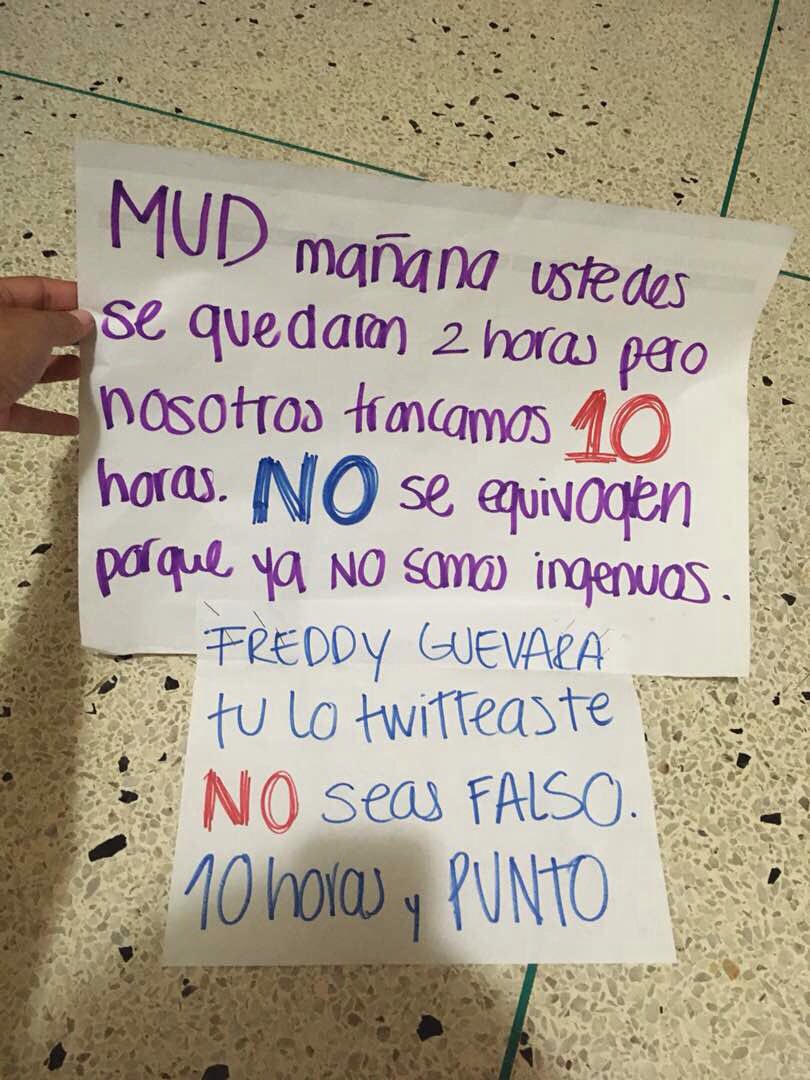 MUD mañana ustedes
se quedaran 2 horas pero
nosotros trancamos 10
horas. NO se equivoqen
porque ya NO somos ingenuos.
FREDDY GUEVARA
tu lo twitteaste
NO seas FALSO.
10 horas y PUNTO